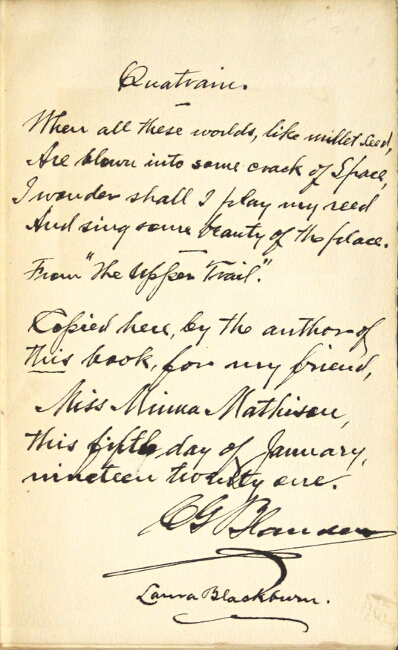 Quatrain.
When all these worlds, like millet seed,
Are blown into some crack of Space,
I wonder shall I play my reed
And sing some beauty of the place.
From "The Upper Trail".
Copied here, by the author of
this book, for my friend,
Miss Minna Mathison,
this fifth day of January,
nineteen twenty one.
CG Blanden
Laura Blackburn.